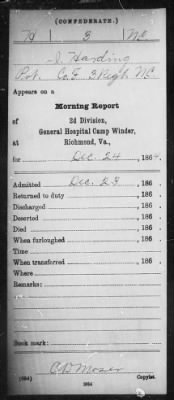 (CONFEDERATE.)
H 3 NC
I. Harding
Pvt. Co. E 3 Reg't NC
Appears on a
Morning Report
of 2d Division,
General Hospital Camp Winder,
at Richmond, Va.,
for Dec. 24, 1864.
Admitted Dec. 23, 186 .
Returned to duty , 186 .
Discharged , 186 .
Deserted , 186 .
Died , 186 .
When furloughed , 186 .
Time
When transferred , 186 .
Where
Remarks:
Book mark:
(594)
Copyist.